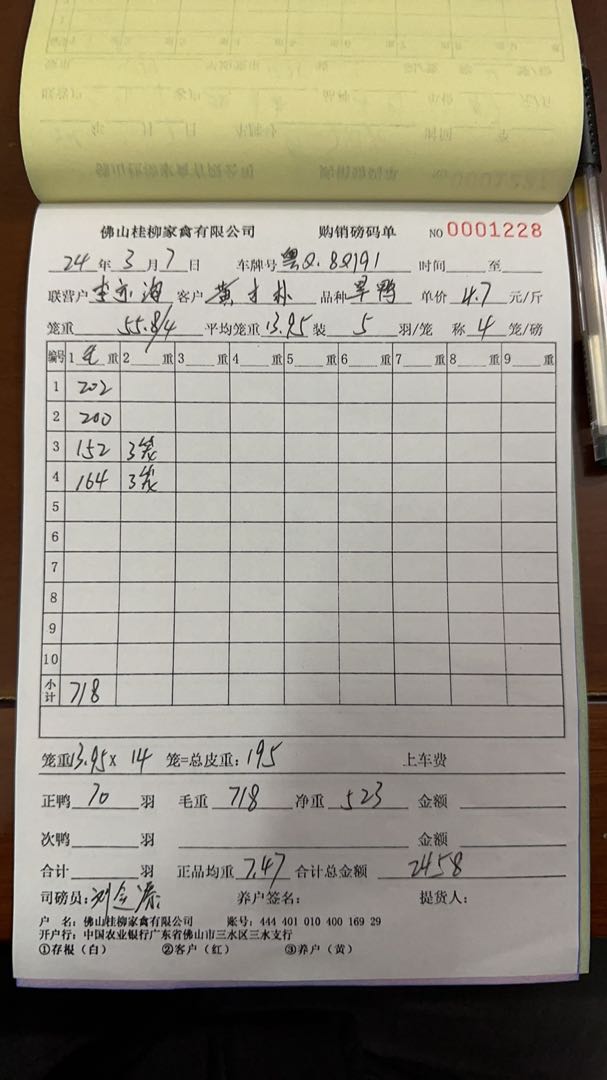 佛山桂柳家禽有限公司 购销磅码单 NO 0001228
24年3月7日 车牌号 粤Q.8Q191 时间 至
联营户 李亦海 客户 黄才朴 品种 旱鸭 单价 4.7 元/斤
笼重 55.8/4 平均笼重 13.95 装 5 羽/笼 称 4 笼/磅
编号 1 毛 重 2 重 3 重 4 重 5 重 6 重 7 重 8 重 9 重
1 202
2 200
3 152 3笼
4 164 3笼
5
6
7
8
9
10
小计 718
笼重 13.95 × 14 笼=总皮重: 195 上车费
正鸭 70 羽 毛重 718 净重 523 金额
次鸭 羽 金额
合计 羽 正品均重 7.47 合计总金额 2458
司磅员: 养户签名: 提货人:
户 名: 佛山桂柳家禽有限公司 账号: 444 401 010 400 169 29
开户行: 中国农业银行广东省佛山市三水区三水支行
①存根（白） ②客户（红） ③养户（黄）